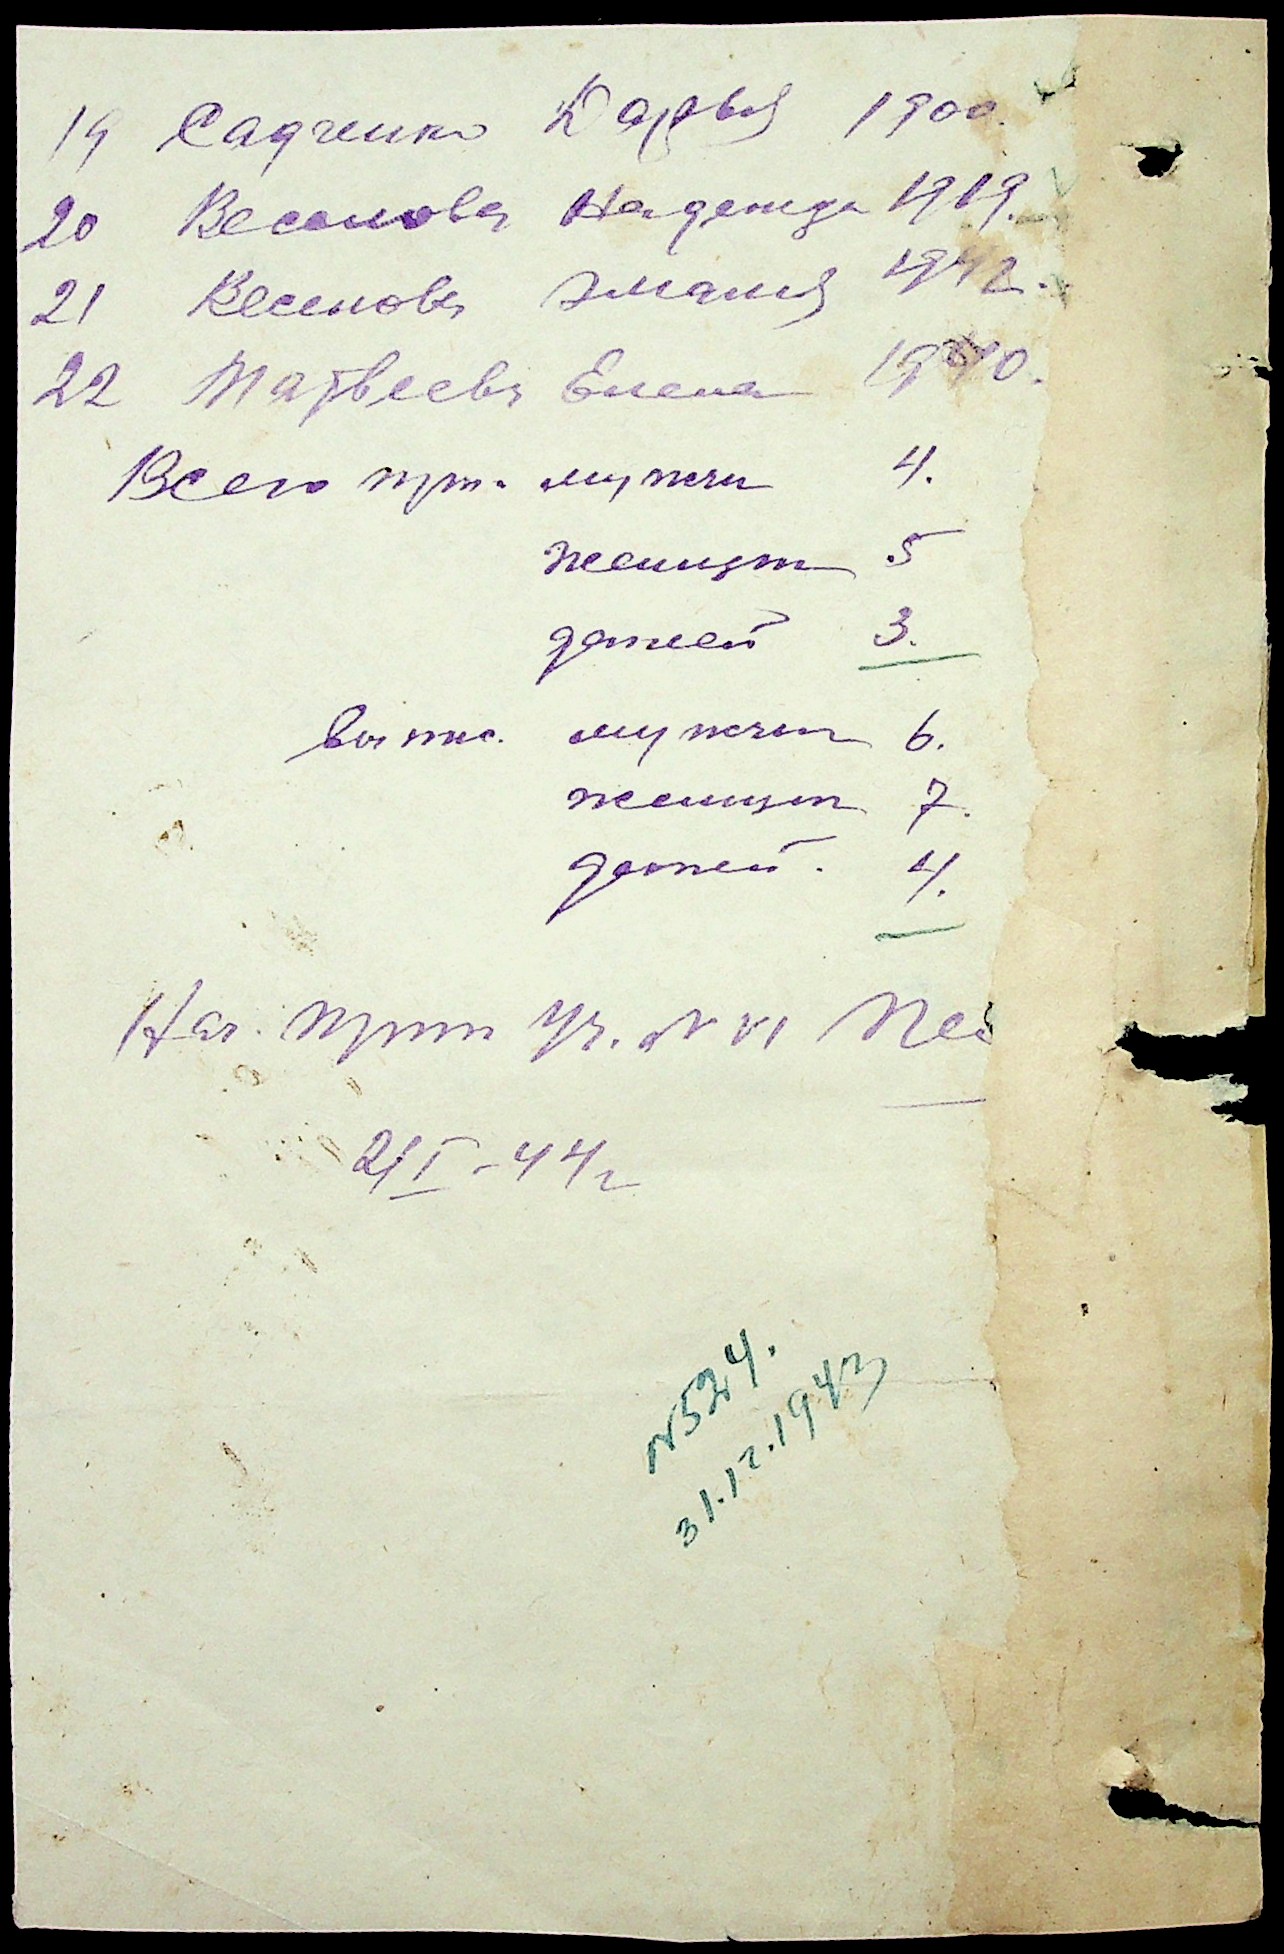 19 Садченко Дарья 1900.
20 Веселова Надежда 1919.
21 Веселова Эмалия 1942.
22 Матвеева Елена 1940.
Всего прт. мужчи 4.
женщин 5
детей 3.
выпис. мужчин 6.
женщин 7.
детей. 4.
Нач. Уч. № VI
21/I - 44г
№524.
31.12.1943